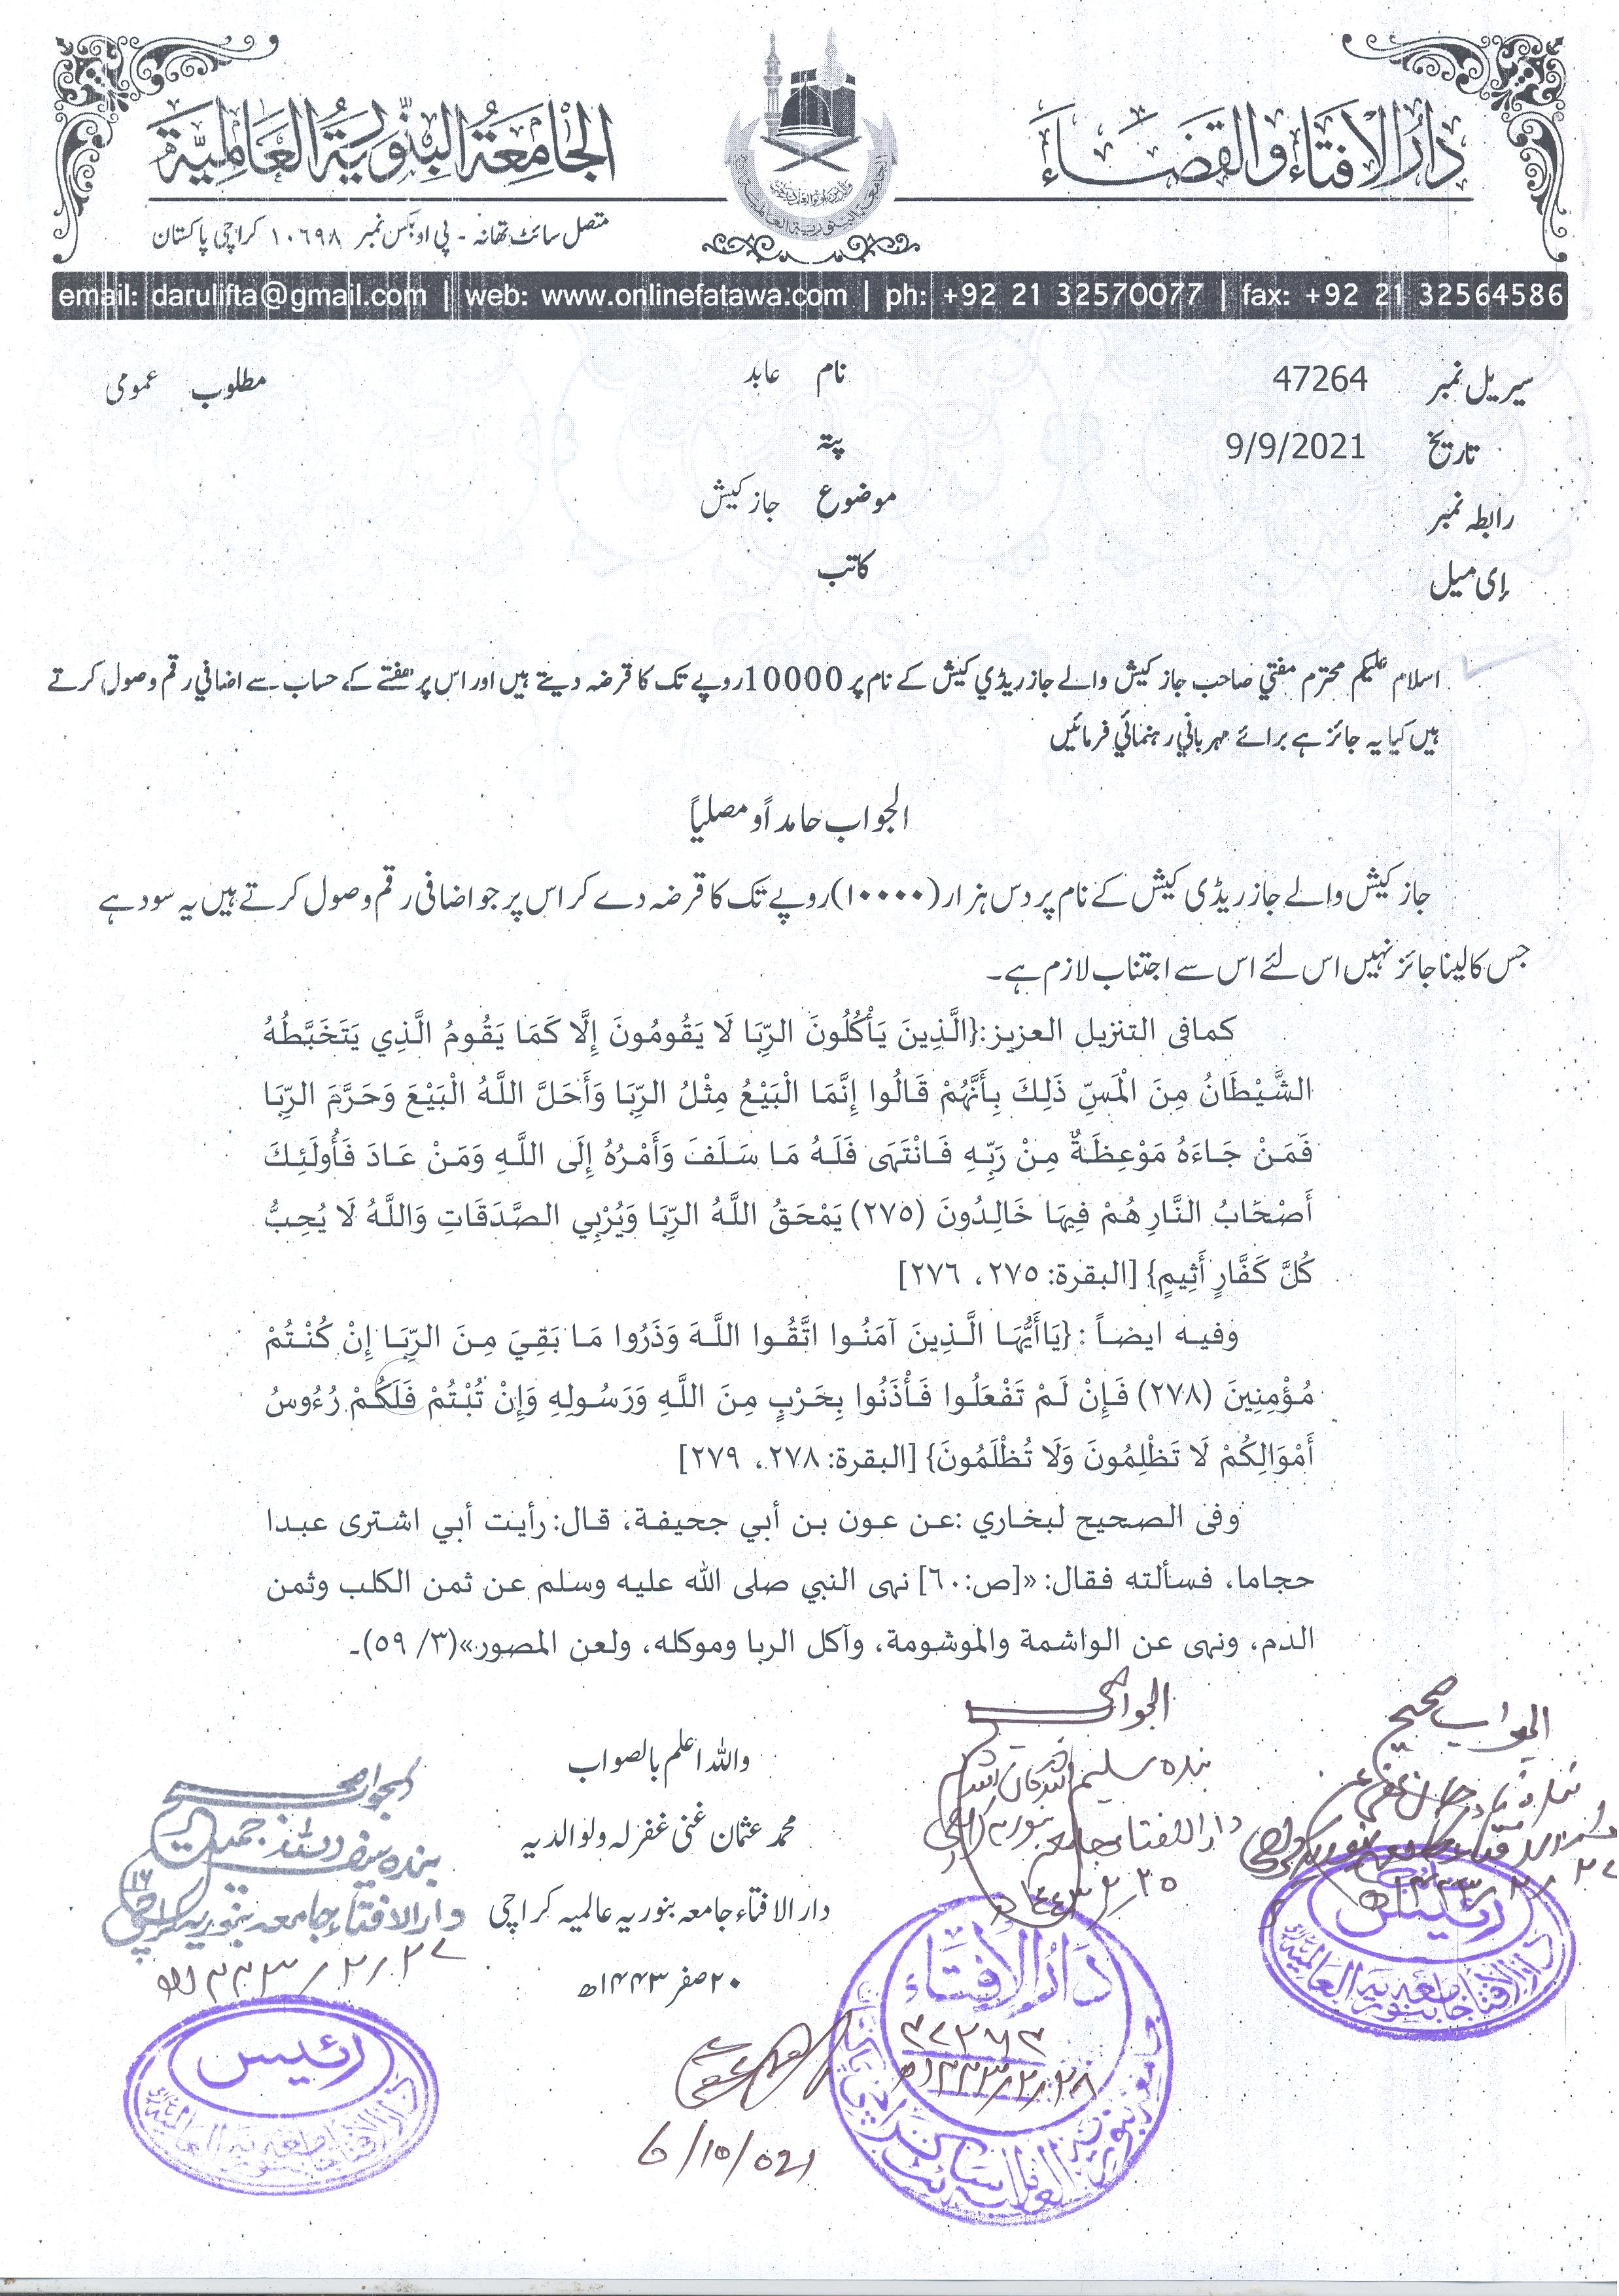 دارُ الافتاء والقضاء
الجامعة البنورية العالمية
متصل سائٹ تھانہ - پی او بکس نمبر ۱۰۶۹۸ کراچی پاکستان
email: darulifta@gmail.com | web: www.onlinefatawa.com | ph: +92 21 32570077 | fax: +92 21 32564586
سیریل نمبر 47264 نام عابد مطلوب عمومی
تاریخ 9/9/2021 پتہ
رابطہ نمبر موضوع جاز کیش
اِی میل کاتب
اسلام علیکم محترم مفتي صاحب جاز کیش والے جاز ریڈي کیش کے نام پر 10000 روپے تک کا قرضہ دیتے ہیں اور اس پر ھفتے کے حساب سے اضافي رقم وصول کرتے
ہیں کیا یہ جائز ہے برائے مہرباني رہنمائي فرمائیں
الجواب حامداً و مصلیاً
جاز کیش والے جاز ریڈی کیش کے نام پر دس ہزار (۱۰۰۰۰) روپے تک کا قرضہ دے کر اس پر جو اضافی رقم وصول کرتے ہیں یہ سود ہے
جس کا لینا جائز نہیں اس لئے اس سے اجتناب لازم ہے۔
كمافى التنزيل العزيز:{الَّذِينَ يَأْكُلُونَ الرِّبَا لَا يَقُومُونَ إِلَّا كَمَا يَقُومُ الَّذِي يَتَخَبَّطُهُ
الشَّيْطَانُ مِنَ الْمَسِّ ذَلِكَ بِأَنَّهُمْ قَالُوا إِنَّمَا الْبَيْعُ مِثْلُ الرِّبَا وَأَحَلَّ اللَّهُ الْبَيْعَ وَحَرَّمَ الرِّبَا
فَمَنْ جَاءَهُ مَوْعِظَةٌ مِنْ رَبِّهِ فَانْتَهَى فَلَهُ مَا سَلَفَ وَأَمْرُهُ إِلَى اللَّهِ وَمَنْ عَادَ فَأُولَئِكَ
أَصْحَابُ النَّارِ هُمْ فِيهَا خَالِدُونَ (٢٧٥) يَمْحَقُ اللَّهُ الرِّبَا وَيُرْبِي الصَّدَقَاتِ وَاللَّهُ لَا يُحِبُّ
كُلَّ كَفَّارٍ أَثِيمٍ} [البقرة: ٢٧٥، ٢٧٦]
وفيه ايضاً :{يَاأَيُّهَا الَّذِينَ آمَنُوا اتَّقُوا اللَّهَ وَذَرُوا مَا بَقِيَ مِنَ الرِّبَا إِنْ كُنْتُمْ
مُؤْمِنِينَ (٢٧٨) فَإِنْ لَمْ تَفْعَلُوا فَأْذَنُوا بِحَرْبٍ مِنَ اللَّهِ وَرَسُولِهِ وَإِنْ تُبْتُمْ فَلَكُمْ رُءُوسُ
أَمْوَالِكُمْ لَا تَظْلِمُونَ وَلَا تُظْلَمُونَ} [البقرة: ٢٧٨، ٢٧٩]
وفى الصحيح لبخاري :عن عون بن أبي جحيفة، قال: رأيت أبي اشترى عبدا
حجاما، فسألته فقال: «[ص:٦٠] نهى النبي صلى الله عليه وسلم عن ثمن الكلب وثمن
الدم، ونهى عن الواشمة والموشومة، وآكل الربا وموكله، ولعن المصور»(٣/ ٥٩)۔
الجواب صحیح
الجواب صحیح
بندہ سلیم
دار الافتاء جامعہ بنوریہ
۲۵/۲/۱۴۴۳ھ
واللہ اعلم بالصواب
محمد عثمان غنی غفرلہ ولوالدیہ
دار الافتاء جامعہ بنوریہ عالمیہ کراچی
۲۰ صفر ۱۴۴۳ھ
6/10/021
الجواب صحیح
دار الافتاء جامعہ بنوریہ
۲۷/۲/۱۴۴۳ھ
رئیس
دار الافتاء جامعہ بنوریہ العالمیہ
دارُ الافتاء
۴۷۲۶۴
۲۸/۲/۱۴۴۳ھ
رئیس
دار الافتاء جامعہ بنوریہ العالمیہ